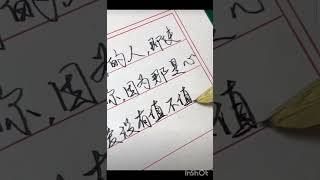 的人,即使
你,因为那是心
爱没有值不值
InShOt